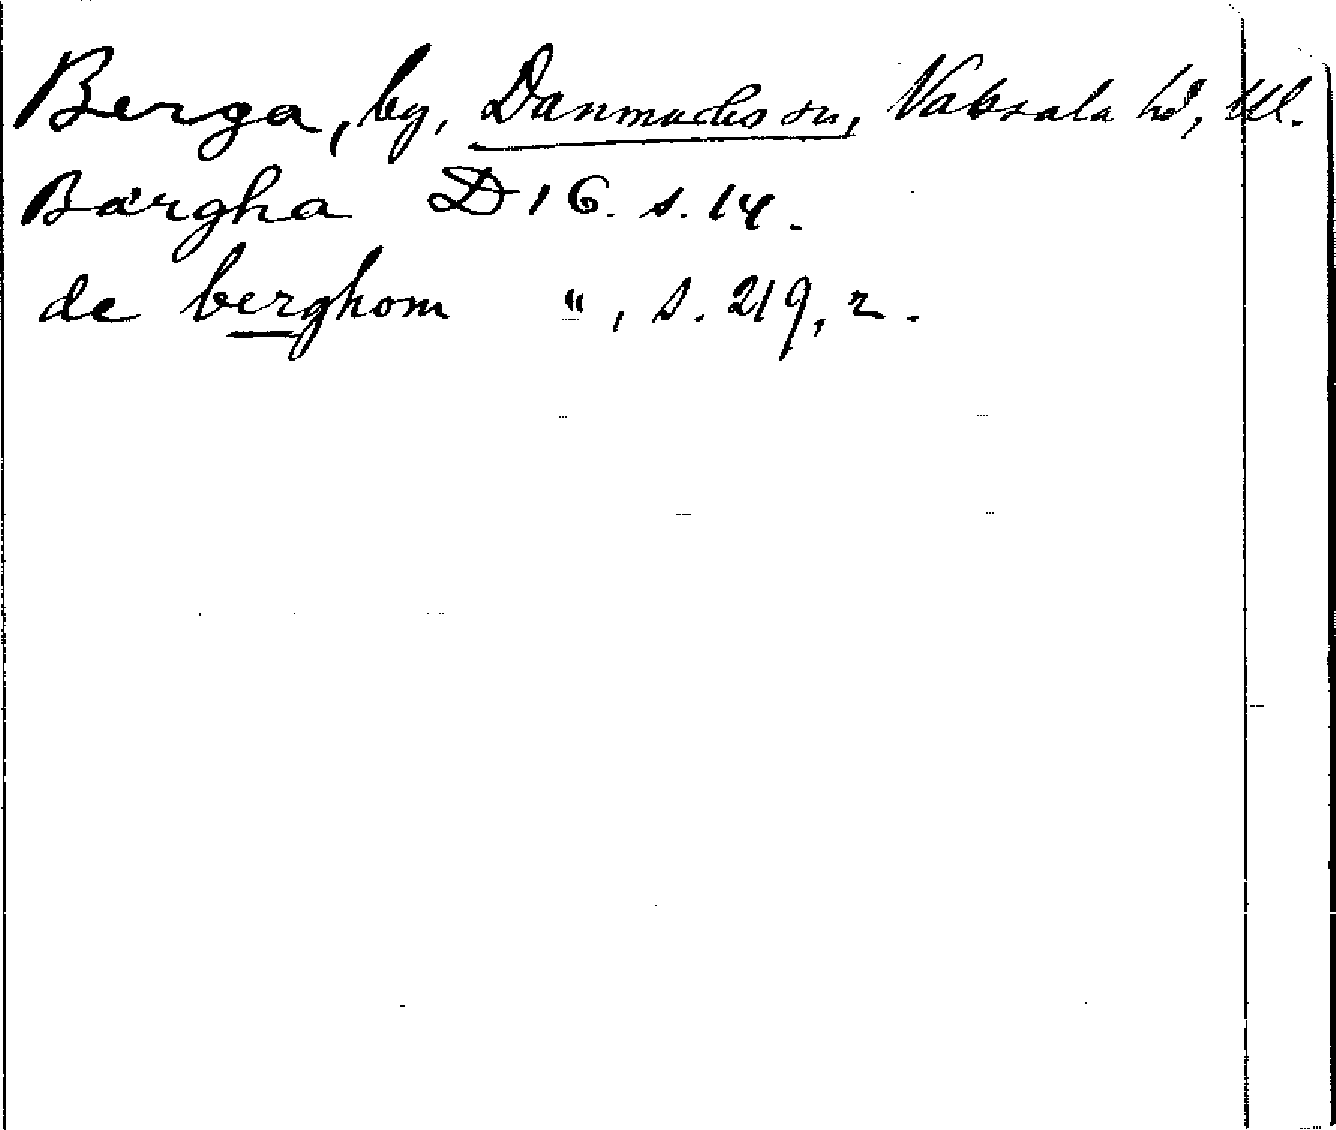 Berga, by, Danmarks sn, Vaksala hd, Upl.
Bärgha D 16. s. 14.
de berghom ", s. 219, r.